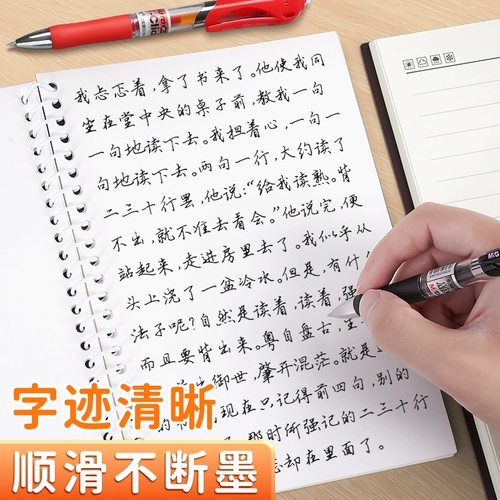 我忐忑着，拿了书来了。他使我同
坐在堂中央的桌子前，教我一句
一句地读下去。我担着心，一句一
句地读下去。两句一行，大约读了
二三十行罢，他说：“给我读熟。背
不出，就不准去看会。”他说完，便
站起来，走进房里去了。我似乎从
头上浇了一盆冷水。但是，有什
法子呢？自然是读着，读着，强
而且要背出来。粤自盘古，生
御世，肇开混茫。就是
现在只记得前四句，别的
那时所强记的二三十行
却在里面了。
字迹清晰
顺滑不断墨